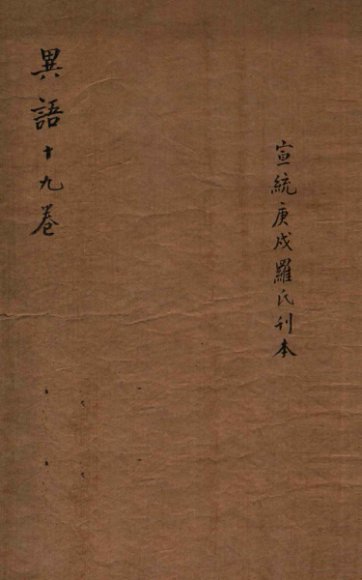 宣統庚戌羅氏刊本
異語十九卷